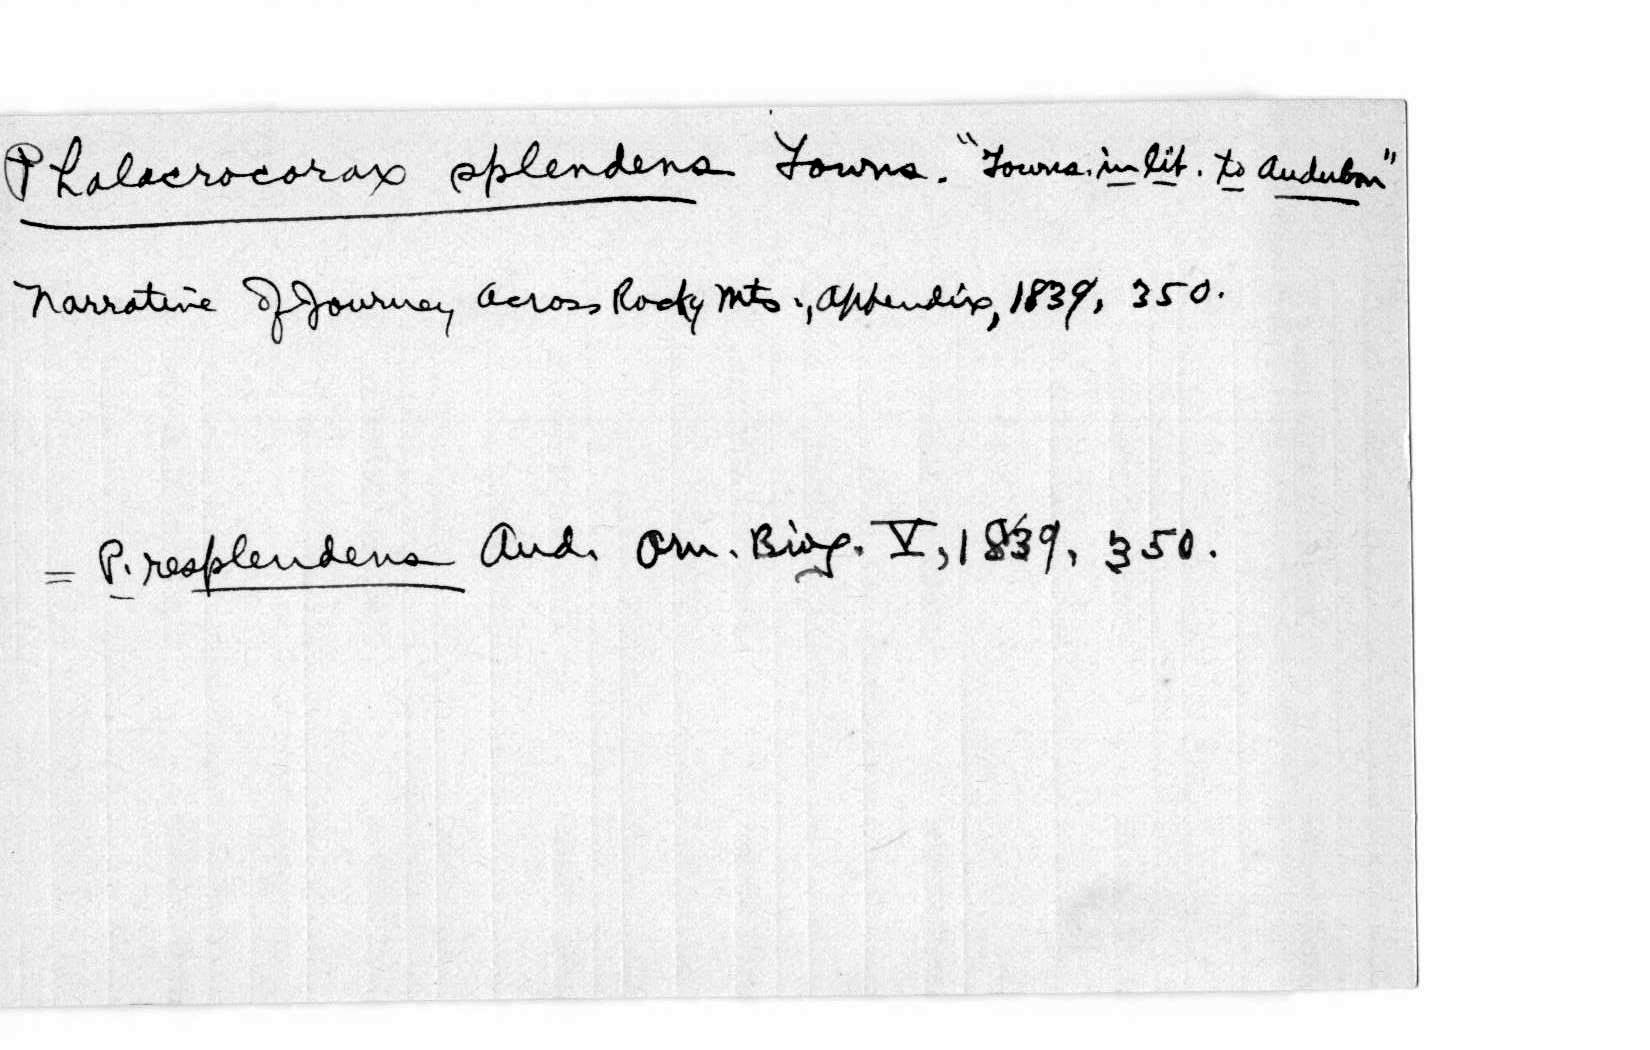 Phalacrocorax splendens Towns. "Towns. in lit. to Audubon"
Narrative of Journey Across Rocky Mts., Appendix, 1839, 350.
= P. resplendens Aud. Orn. Biog. V, 1839, 350.